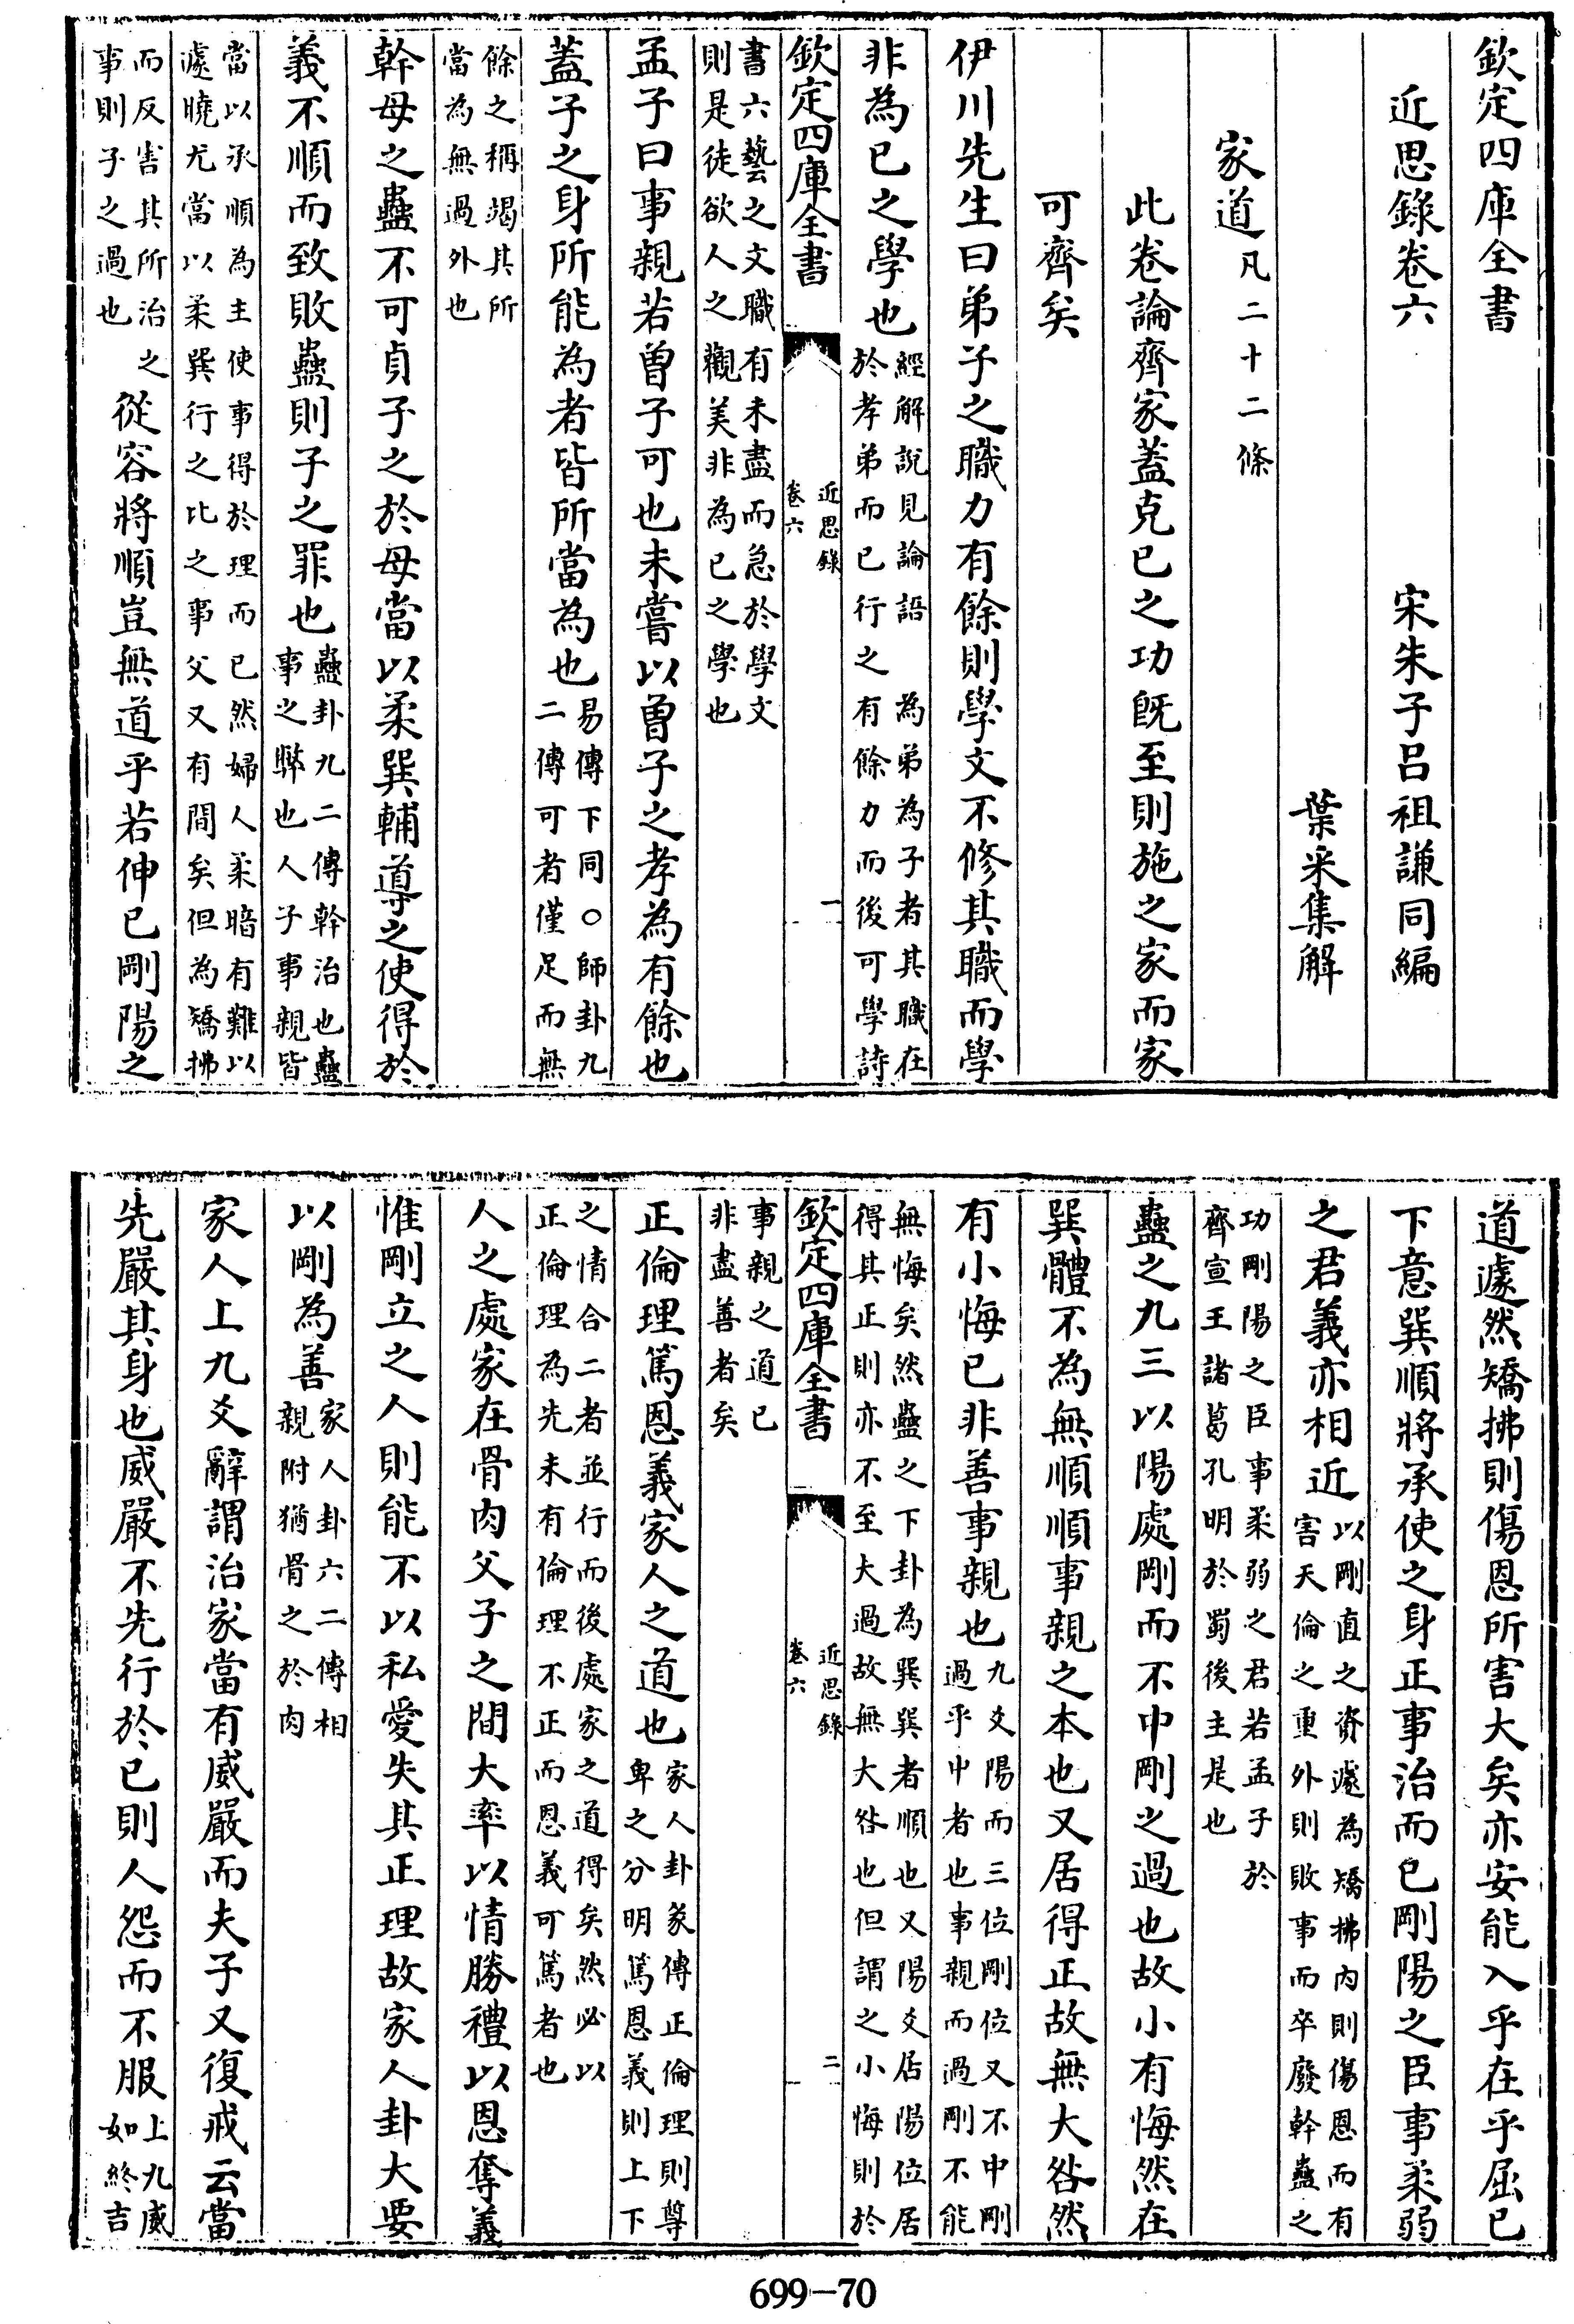 欽定四庫全書
近思錄卷六
宋朱子呂祖謙同編
葉采集解
家道凡二十二條
此卷論齊家蓋克已之功既至則施之家而家
可齊矣
伊川先生曰弟子之職力有餘則學文不修其職而學
非為已之學也經解說見論語　為弟為子者其職在
於孝弟而已行之有餘力而後可學詩
欽定四庫全書
近思錄
卷六
一
書六藝之文職有未盡而急於學文
則是徒欲人之觀美非為已之學也
孟子曰事親若曾子可也未嘗以曾子之孝為有餘也
蓋子之身所能為者皆所當為也易傳下同○師卦九
二傳可者僅足而無
餘之稱竭其所
當為無過外也
幹母之蠱不可貞子之於母當以柔巽輔導之使得於
義不順而致敗蠱則子之罪也蠱卦九二傳幹治也蠱
事之弊也人子事親皆
當以承順為主使事得於理而已然婦人柔暗有難以
遽曉尤當以柔巽行之比之事父又有間矣但為矯拂
而反害其所治之
事則子之過也
從容將順豈無道乎若伸已剛陽之
道遽然矯拂則傷恩所害大矣亦安能入乎在乎屈已
下意巽順將承使之身正事治而已剛陽之臣事柔弱
之君義亦相近以剛直之資遽為矯拂内則傷恩而有
害天倫之重外則敗事而卒廢幹蠱之
功剛陽之臣事柔弱之君若孟子於
齊宣王諸葛孔明於蜀後主是也
蠱之九三以陽處剛而不中剛之過也故小有悔然在
巽體不為無順順事親之本也又居得正故無大咎然
有小悔已非善事親也九爻陽而三位剛位又不中剛
過乎中者也事親而過剛不能
無悔矣然蠱之下卦為巽巽者順也又陽爻居陽位居
得其正則亦不至大過故無大咎也但謂之小悔則於
欽定四庫全書
近思錄
卷六
二
事親之道已
非盡善者矣
正倫理篤恩義家人之道也家人卦彖傳正倫理則尊
卑之分明篤恩義則上下
之情合二者並行而後處家之道得矣然必以
正倫理為先未有倫理不正而恩義可篤者也
人之處家在骨肉父子之間大率以情勝禮以恩奪義
惟剛立之人則能不以私愛失其正理故家人卦大要
以剛為善家人卦六二傳相
親附猶骨之於肉
家人上九爻辭謂治家當有威嚴而夫子又復戒云當
先嚴其身也威嚴不先行於已則人怨而不服上九威
如終吉
699-70